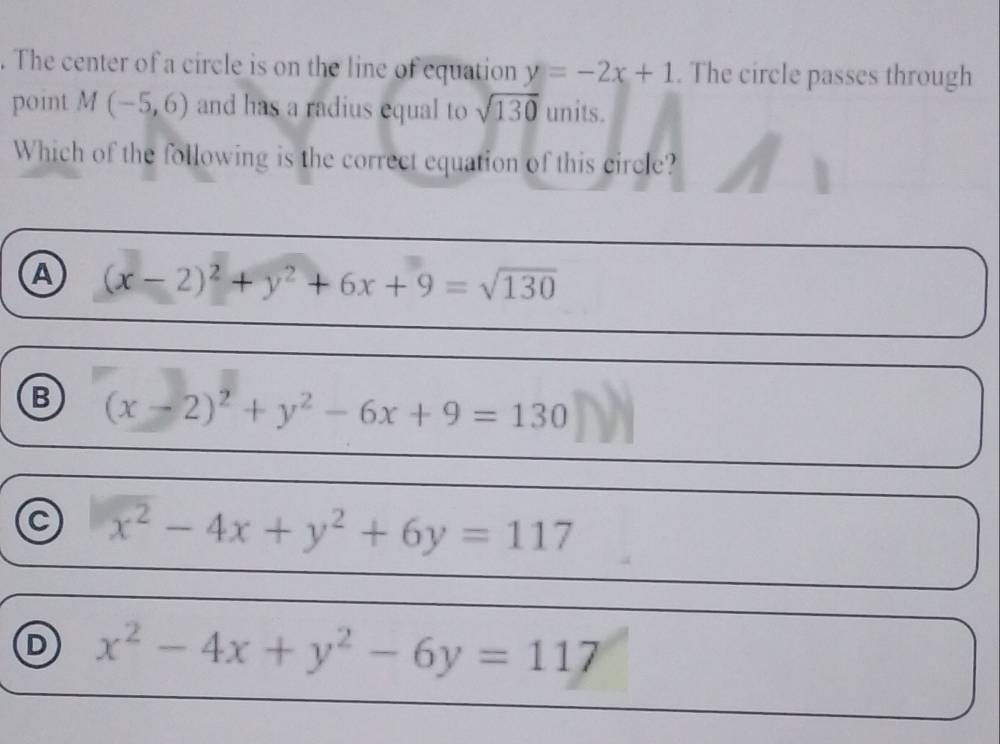 . The center of a circle is on the line of equation y = −2x + 1. The circle passes through
point M (−5, 6) and has a radius equal to √130 units.
Which of the following is the correct equation of this circle?
A (x − 2)² + y² + 6x + 9 = √130
B (x − 2)² + y² − 6x + 9 = 130
C x² − 4x + y² + 6y = 117
D x² − 4x + y² − 6y = 117